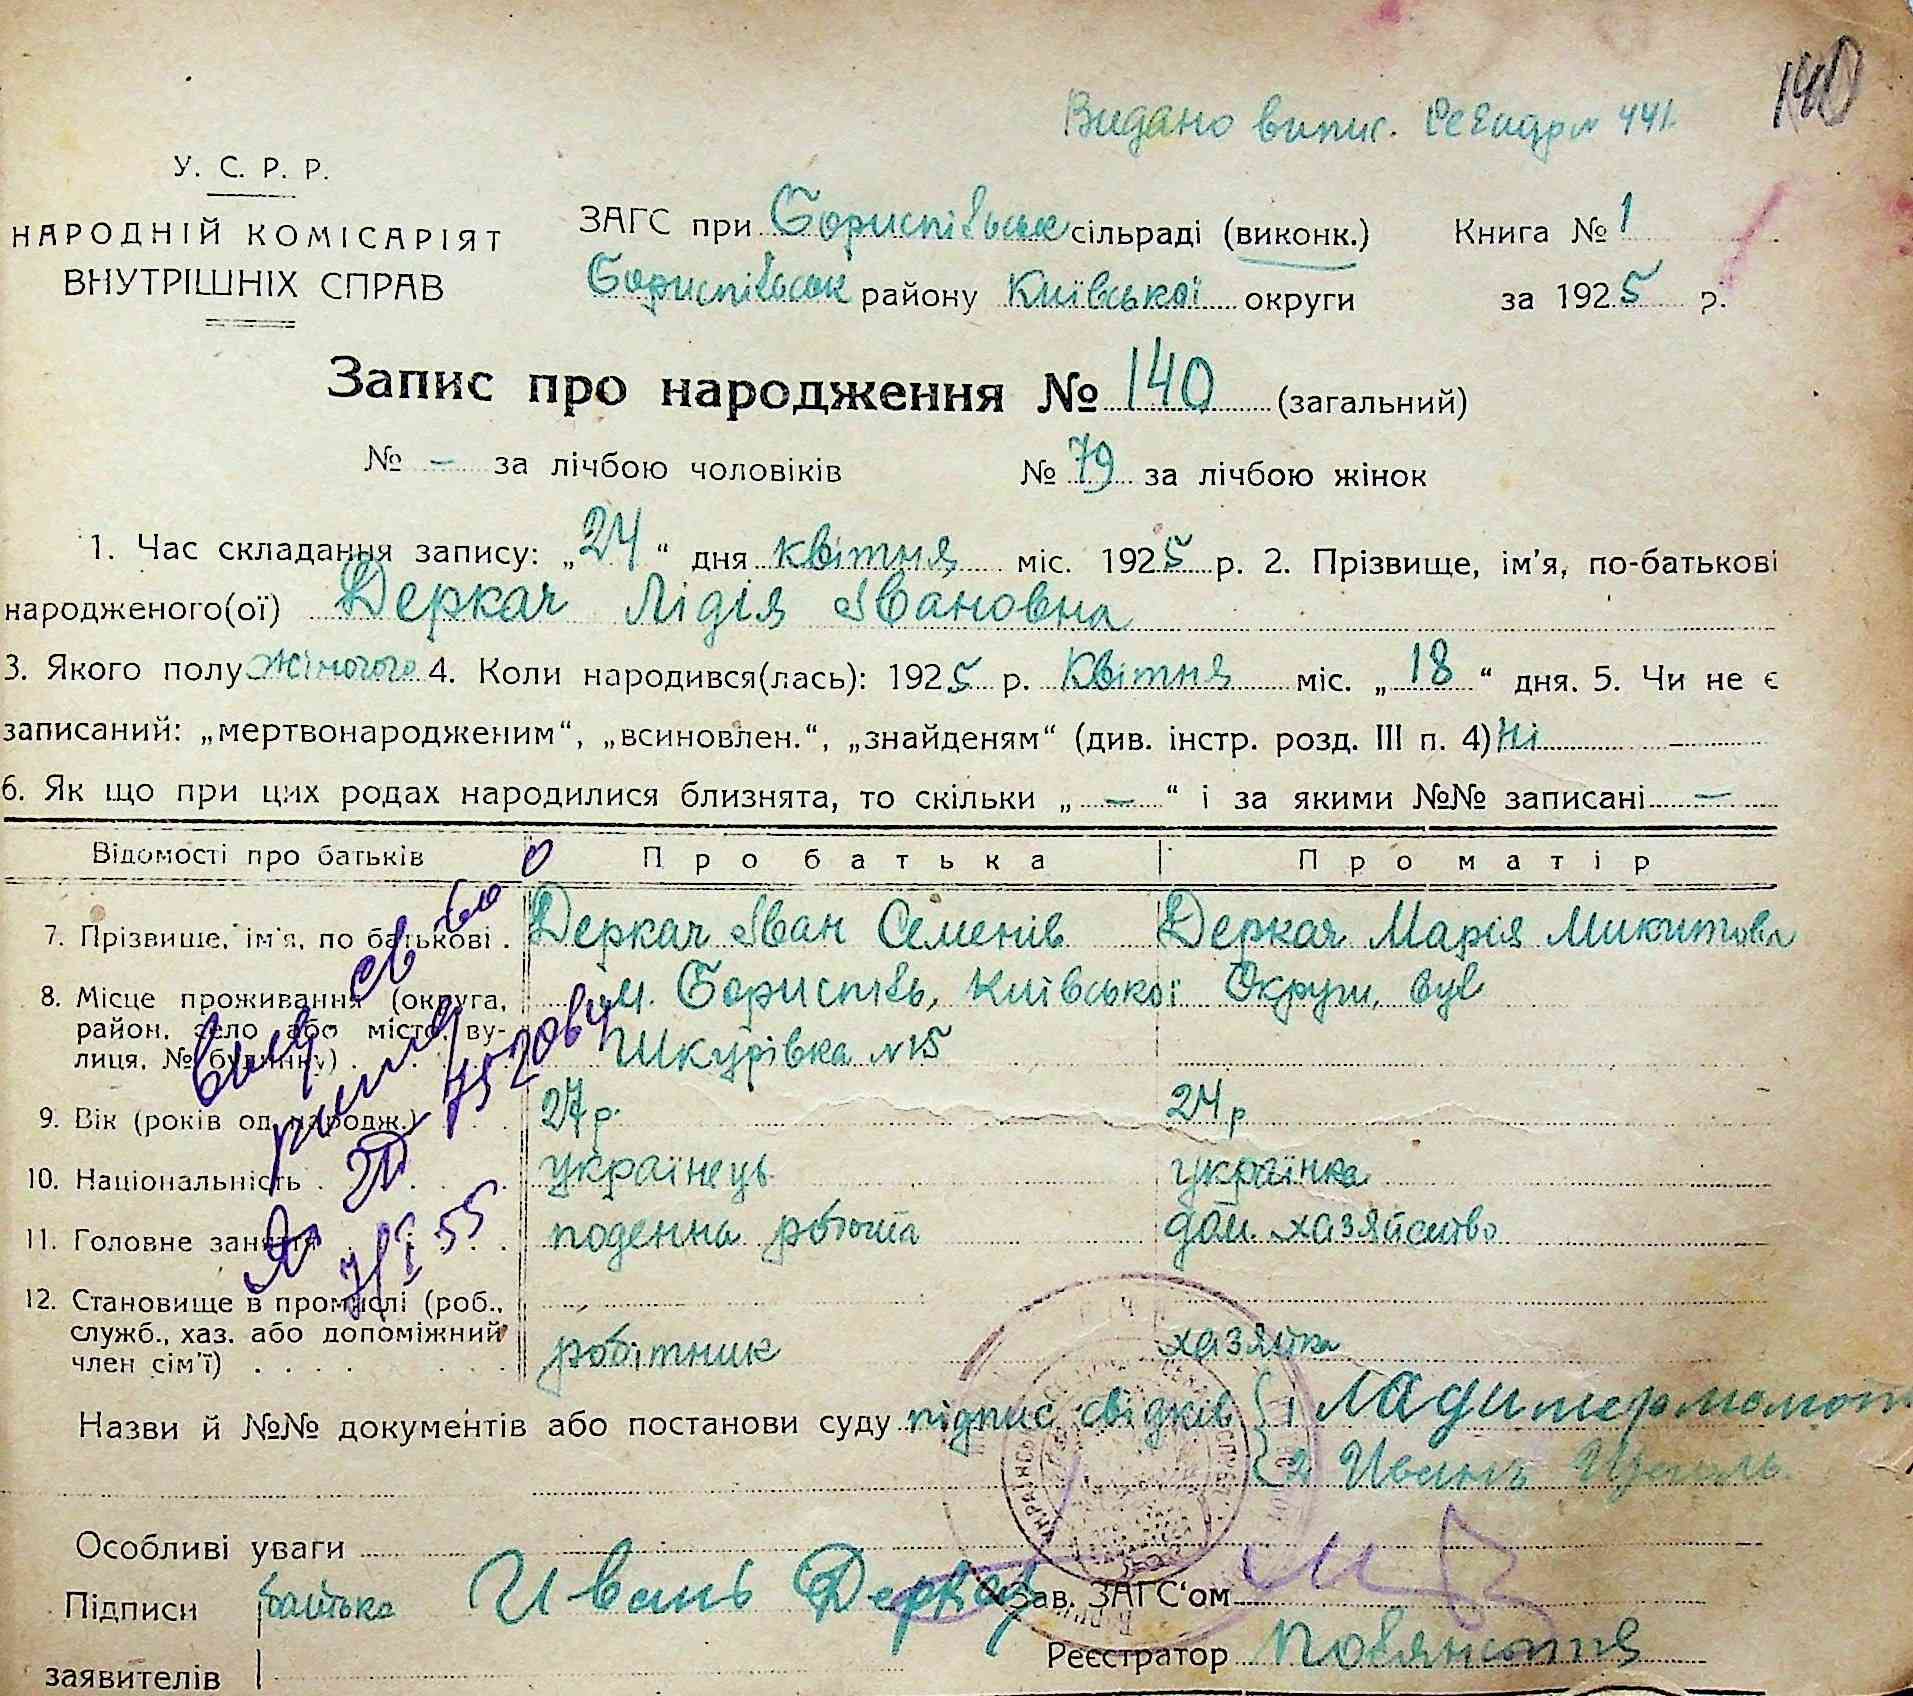 140
Видано випис. 441
У. С. Р. Р.
НАРОДНІЙ КОМІСАРІЯТ
ВНУТРІШНІХ СПРАВ
ЗАГС при Бориспільськ сільраді (виконк.) Книга № 1
Бориспільськ району Київської округи за 1925 р.
Запис про народження № 140 (загальний)
№ — за лічбою чоловіків № 79 за лічбою жінок
1. Час складання запису: „24“ дня квітня міс. 1925 р. 2. Прізвище, ім'я, по-батькові
народженого(ої) Деркач Лідія Івановна
3. Якого полу жіночого 4. Коли народився(лась): 1925 р. Квітня міс. „18“ дня. 5. Чи не є
записаний: „мертвонародженим“, „всиновлен.“, „знайденям“ (див. інстр. розд. III п. 4) Ні
6. Як що при цих родах народилися близнята, то скільки „—“ і за якими №№ записані —
Відомості про батьків Про батька Про матір
7. Прізвище, ім'я, по батькові . Деркач Іван Семенів Деркач Марія Микитова
8. Місце проживання (округа, м. Бориспіль, Київської Округи, вул
район, село або місто, ву- Шкурівка №15
лиця, № будинку) . . . .
9. Вік (років од народж.) . . . 27 р. 24 р
10. Національність . . . . українець українка
11. Головне заняття . . . . поденна робота дом. хазяйство
12. Становище в промислі (роб.,
служб., хаз. або допоміжний робітник хазяйка
член сім'ї) . . . .
7/I 55
Назви й №№ документів або постанови суду підпис свідків { 1
{ 2 Иванъ
Особливі уваги
Підписи батька Иванъ Деркач Зав. ЗАГС'ом
заявителів Реєстратор